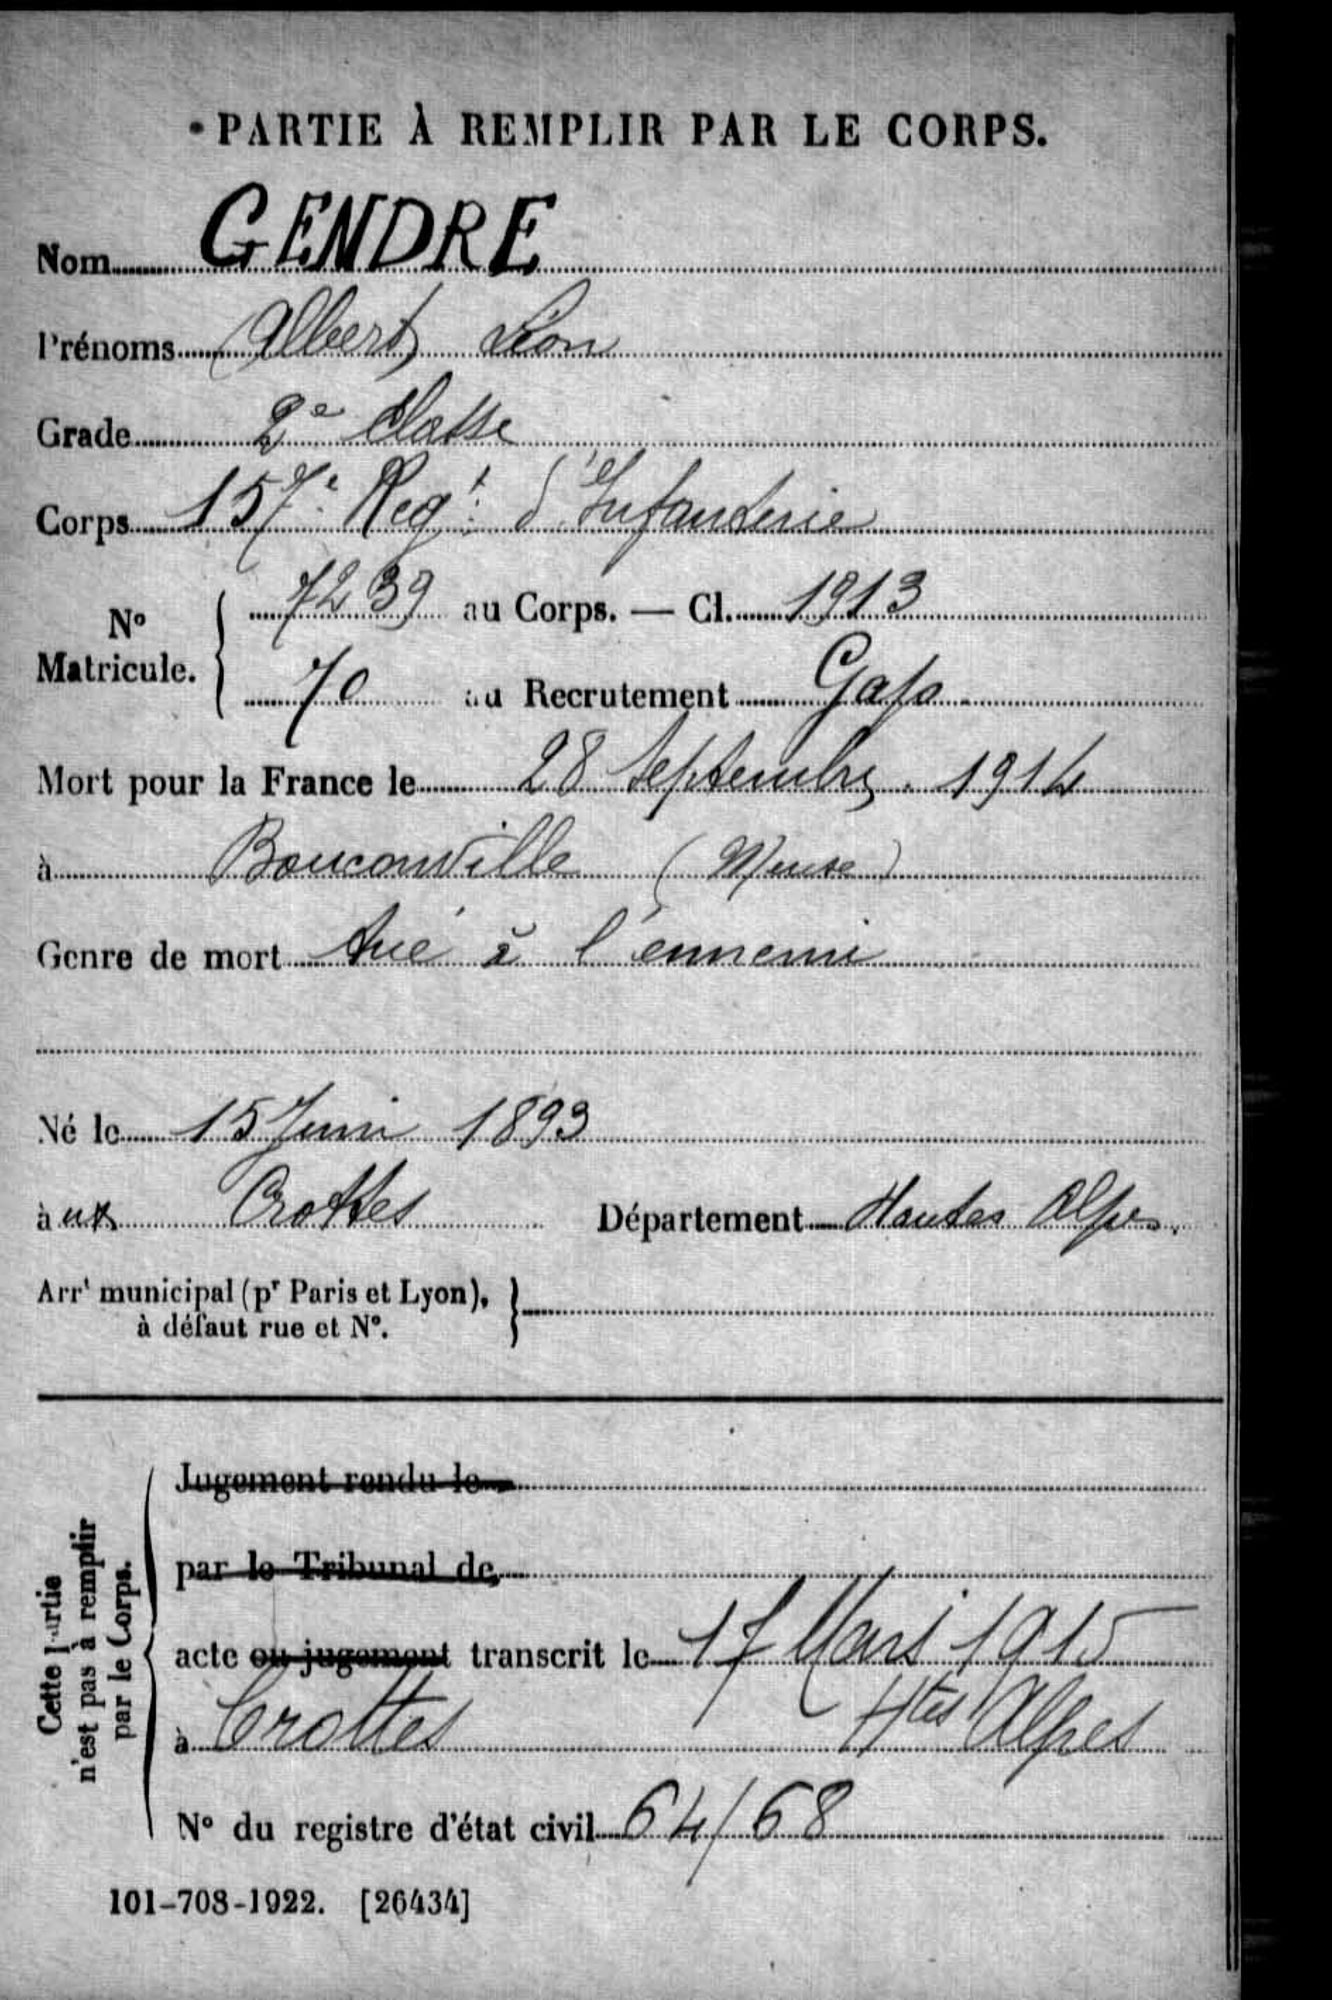 PARTIE À REMPLIR PAR LE CORPS.
Nom GENDRE
Prénoms Albert Léon
Grade 2e Classe
Corps 157e Regt d'Infanterie
No Matricule. { 7239 au Corps. — Cl. 1913
70 au Recrutement Gap
Mort pour la France le 28 Septembre 1914
à Bouconville (Meuse)
Genre de mort tué à l'ennemi
Né le 15 Juin 1893
à ux Crottes Département Hautes Alpes.
Arrt municipal (pr Paris et Lyon),
à défaut rue et No.
Cette partie
n'est pas à remplir
par le Corps.
Jugement rendu le
par le Tribunal de
acte ou jugement transcrit le 17 Mars 1915
à Crottes Htes Alpes
No du registre d'état civil 64/68
101-708-1922. [26434]